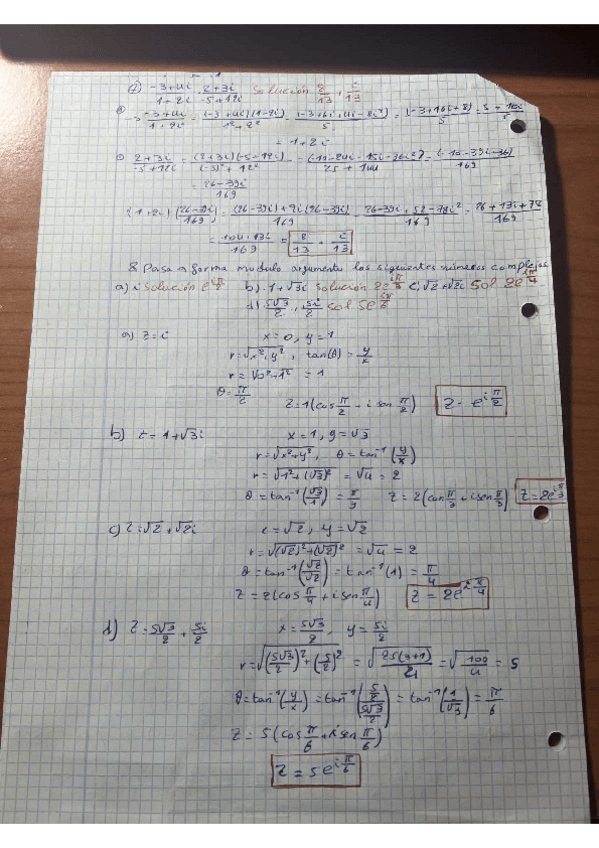 7) -3+4i/1+2i · 2+3i/-5+12i Solución 8/13 + i/13
→ -3+4i/1+2i = (-3+4i)(1-2i)/1²+2² = (-3+6i+4i-8i²)/5 = (-3+10i+8)/5 = 5+10i/5
= 1+2i
2+3i/-5+12i = (2+3i)(-5-12i)/(-5)²+12² = (-10-24i-15i-36i²)/25+144 = (-10-39i-36)/169
= 26-39i/169
(1+2i)(26-39i/169) = (26-39i)+2i(26-39i)/169 = 26-39i+52-78i²/169 = 26+13i+78/169
= 104+13i/169 = 8/13 + i/13
8. Pasa a forma modulo argumento los siguientes números complejos
a) i solución e^iπ/2 b) 1+√3i solución 2e^iπ/3 c) √2+√2i sol 2e^iπ/4
d) 5√3/2 + 5i/2 sol 5e^iπ/6
a) z=i x=0, y=1
r=√x²+y², tan(θ)=y/x
r=√0²+1² = 1
θ=π/2
z=1(cosπ/2 + i senπ/2) z=e^iπ/2
b) z=1+√3i x=1, y=√3
r=√x²+y², θ=tan⁻¹(y/x)
r=√1²+(√3)² = √4 = 2
θ=tan⁻¹(√3/1)=π/3 z=2(cosπ/3+isenπ/3) z=2e^iπ/3
c) z=√2+√2i x=√2, y=√2
r=√(√2)²+(√2)² = √4 = 2
θ=tan⁻¹(√2/√2)=tan⁻¹(1)=π/4
z=2(cosπ/4+isenπ/4) z=2e^iπ/4
d) z=5√3/2+5i/2 x=5√3/2, y=5i/2
r=√(5√3/2)²+(5/2)² = √25(3+1)/4 = √100/4 = 5
θ=tan⁻¹(y/x)=tan⁻¹(5/2/5√3/2)=tan⁻¹(1/√3)=π/6
z=5(cosπ/6+isenπ/6)
z=5e^iπ/6